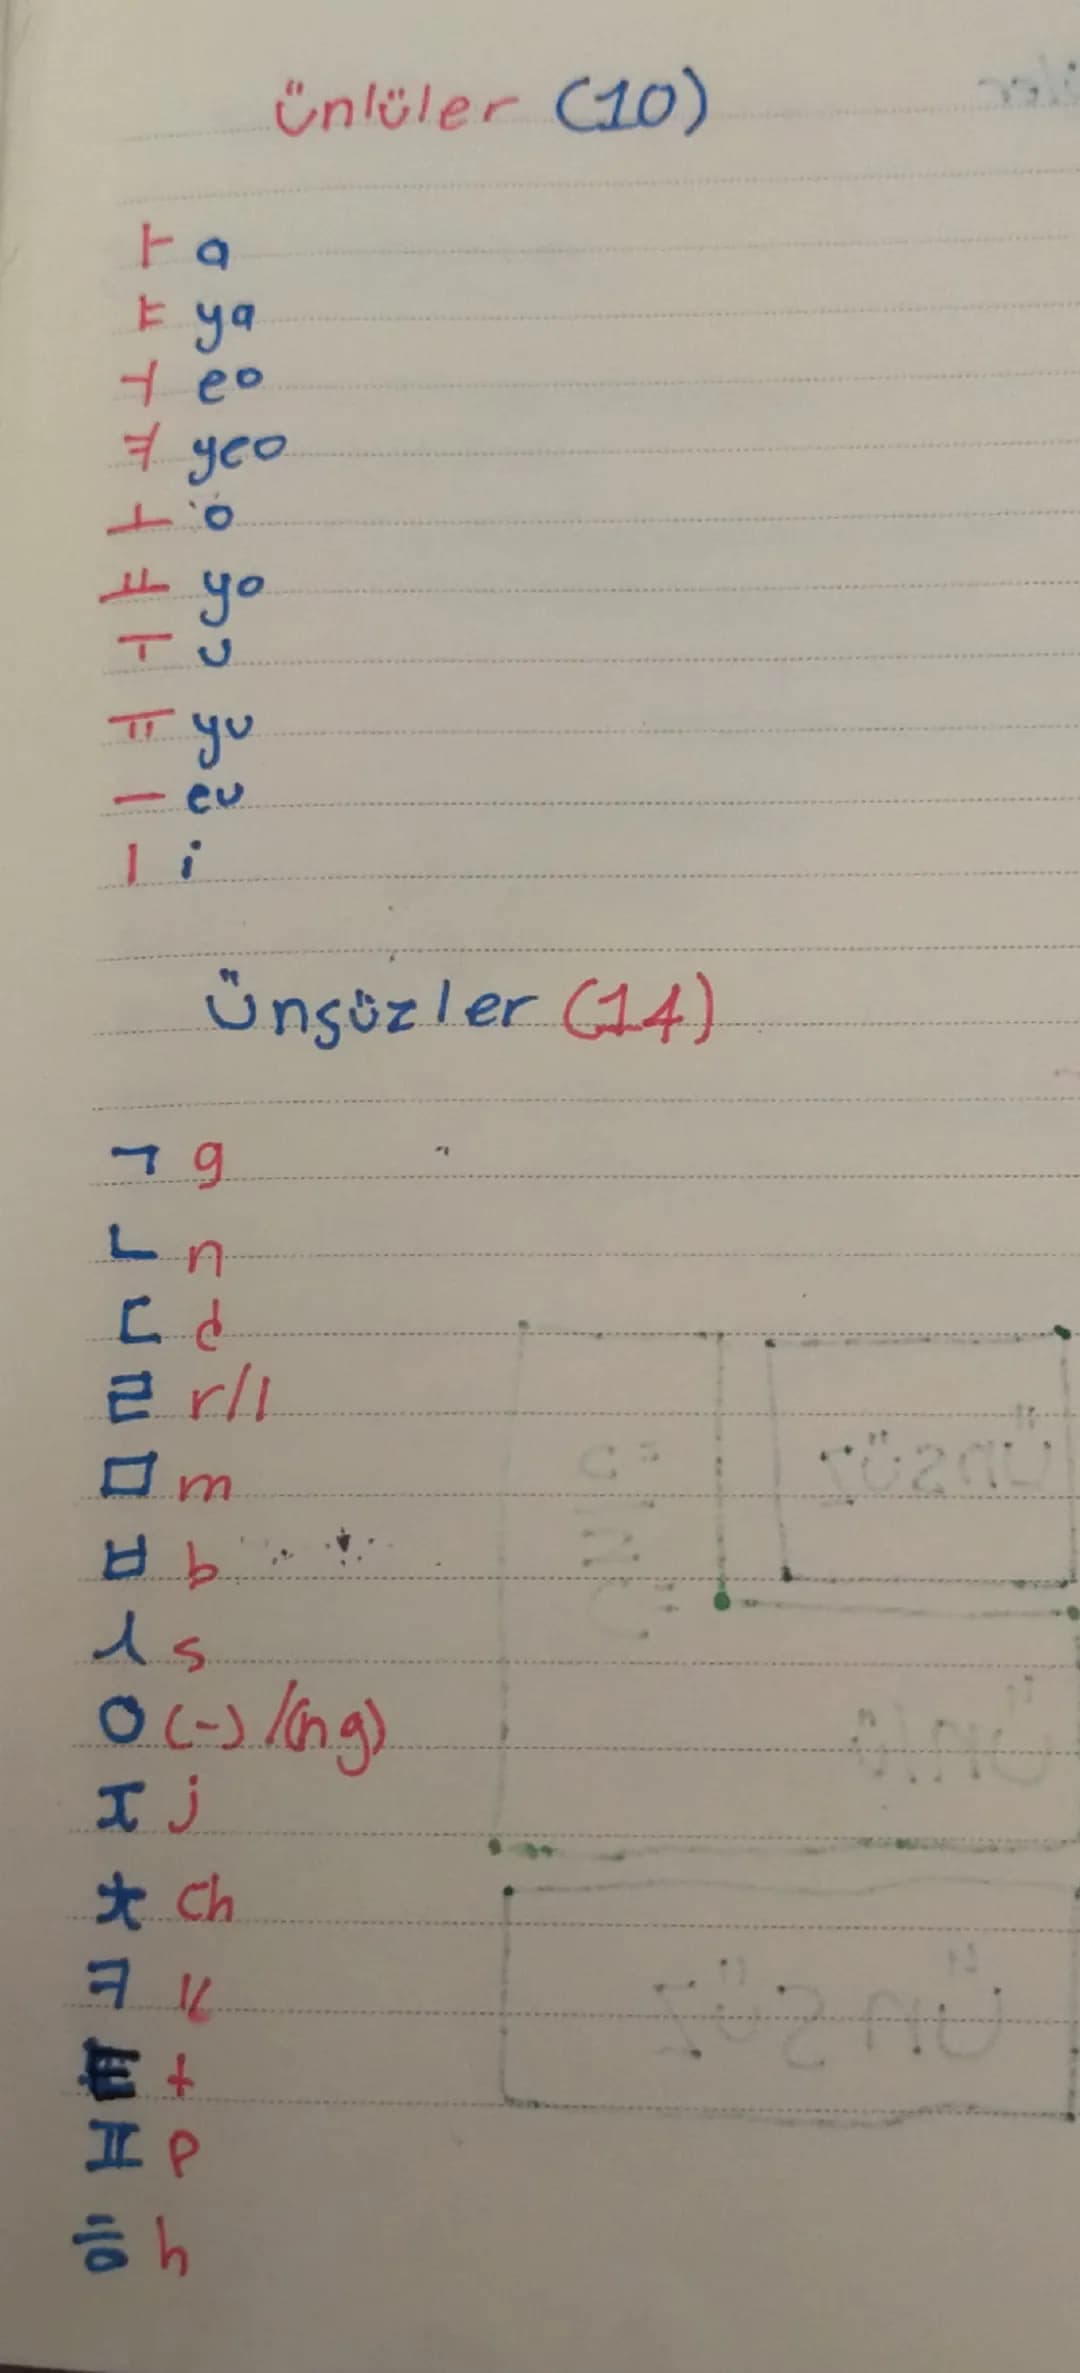 ünlüler (10)
ㅏ a
ㅑ ya
ㅓ eo
ㅕ yeo
ㅗ o
ㅛ yo
ㅜ u
ㅠ yu
ㅡ eu
ㅣ i
Ünsüzler (14)
ㄱ g
ㄴ n
ㄷ d
ㄹ r/l
ㅁ m
ㅂ b
ㅅ s
ㅇ (-) /(ng)
ㅈ j
ㅊ ch
ㅋ k
ㅌ t
ㅍ p
ㅎ h
ünsüz
ünlü
ünlü
ünsüz